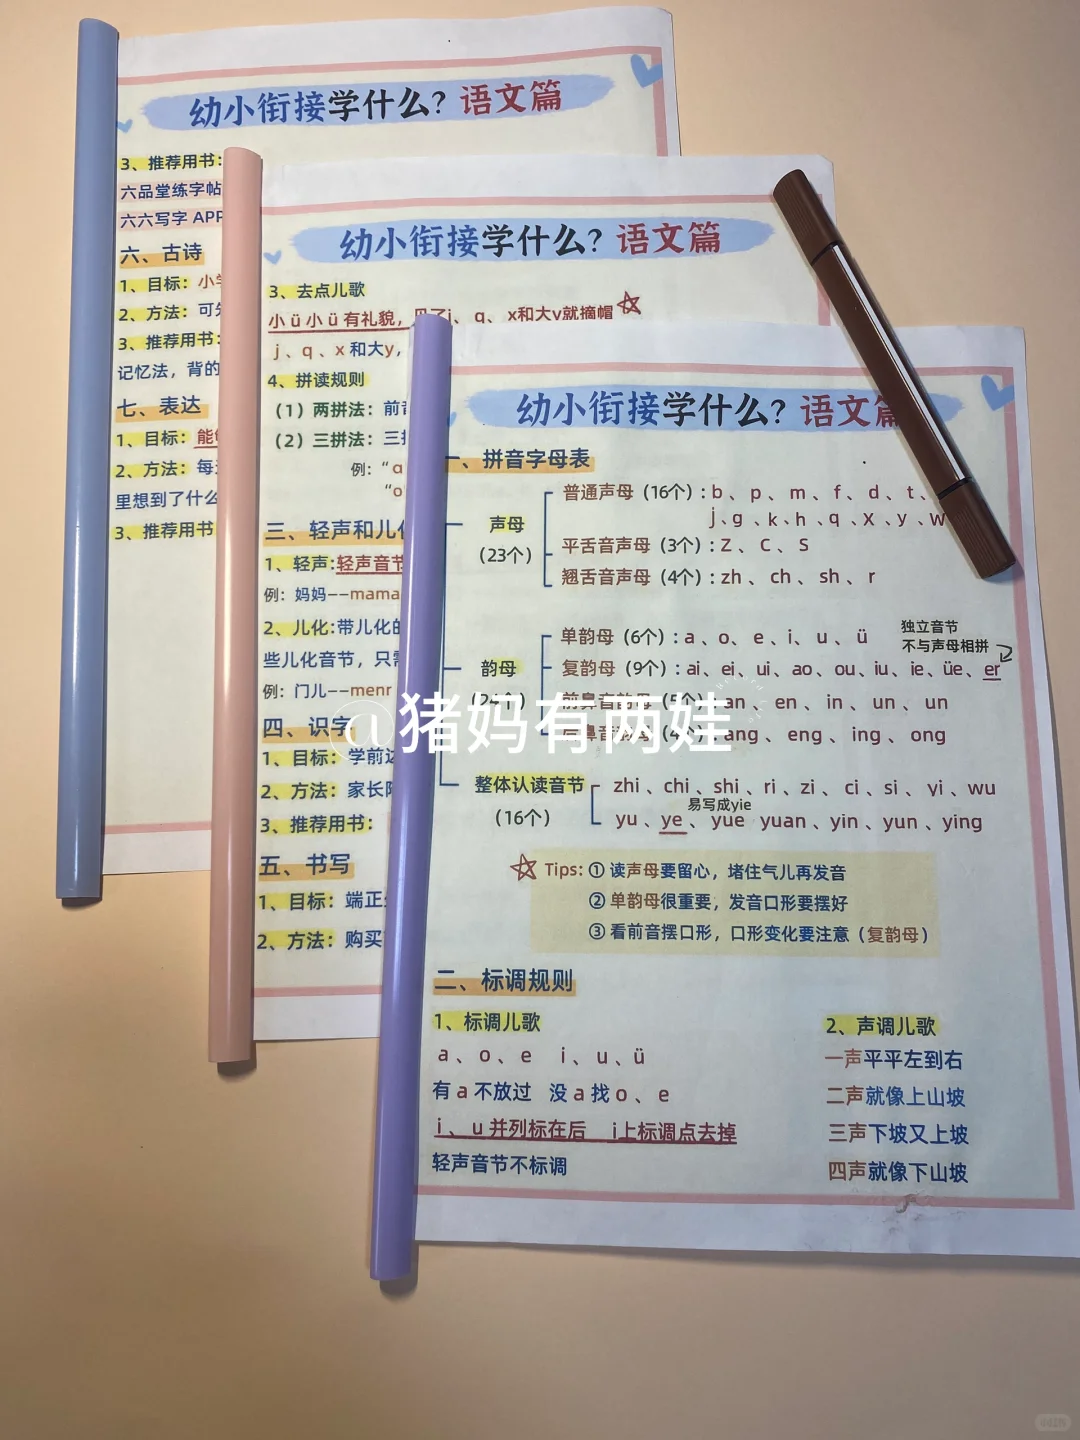 幼小衔接学什么？语文篇
3、推荐用书：
六品堂练字帖
六六写字 APP
六、古诗
1、目标：小学
2、方法：可先
3、推荐用书：
记忆法，背的
七、表达
1、目标：能
2、方法：每
里想到了什么
3、推荐用书
幼小衔接学什么？语文篇
3、去点儿歌
小ü小ü有礼貌，见了j、q、x和大y就摘帽
j、q、x 和大y，
4、拼读规则
（1）两拼法：前
（2）三拼法：三
例：“a
“o
三、轻声和儿化
1、轻声：轻声音节
例：妈妈——mama
2、儿化：带儿化的
些儿化音节，只需
例：门儿——menr
四、识字
1、目标：学前
2、方法：家长
3、推荐用书：
五、书写
1、目标：端正
2、方法：购买
幼小衔接学什么？语文篇
一、拼音字母表
声母
（23个）
普通声母（16个）：b、p、m、f、d、t、
j、g、k、h、q、x、y、w
平舌音声母（3个）：z、c、s
翘舌音声母（4个）：zh、ch、sh、r
韵母
（24个）
单韵母（6个）：a、o、e、i、u、ü
独立音节
不与声母相拼
复韵母（9个）：ai、ei、ui、ao、ou、iu、ie、üe、er
前鼻音韵母（5个）：an、en、in、un、un
后鼻音韵母（4个）：ang、eng、ing、ong
@猪妈有两娃
整体认读音节
（16个）
zhi、chi、shi、ri、zi、ci、si、yi、wu
易写成yie
yu、ye、yue yuan、yin、yun、ying
Tips：① 读声母要留心，堵住气儿再发音
② 单韵母很重要，发音口形要摆好
③ 看前音摆口形，口形变化要注意（复韵母）
二、标调规则
1、标调儿歌
a、o、e i、u、ü
有 a 不放过 没 a 找 o、e
i、u 并列标在后 i上标调点去掉
轻声音节不标调
2、声调儿歌
一声平平左到右
二声就像上山坡
三声下坡又上坡
四声就像下山坡